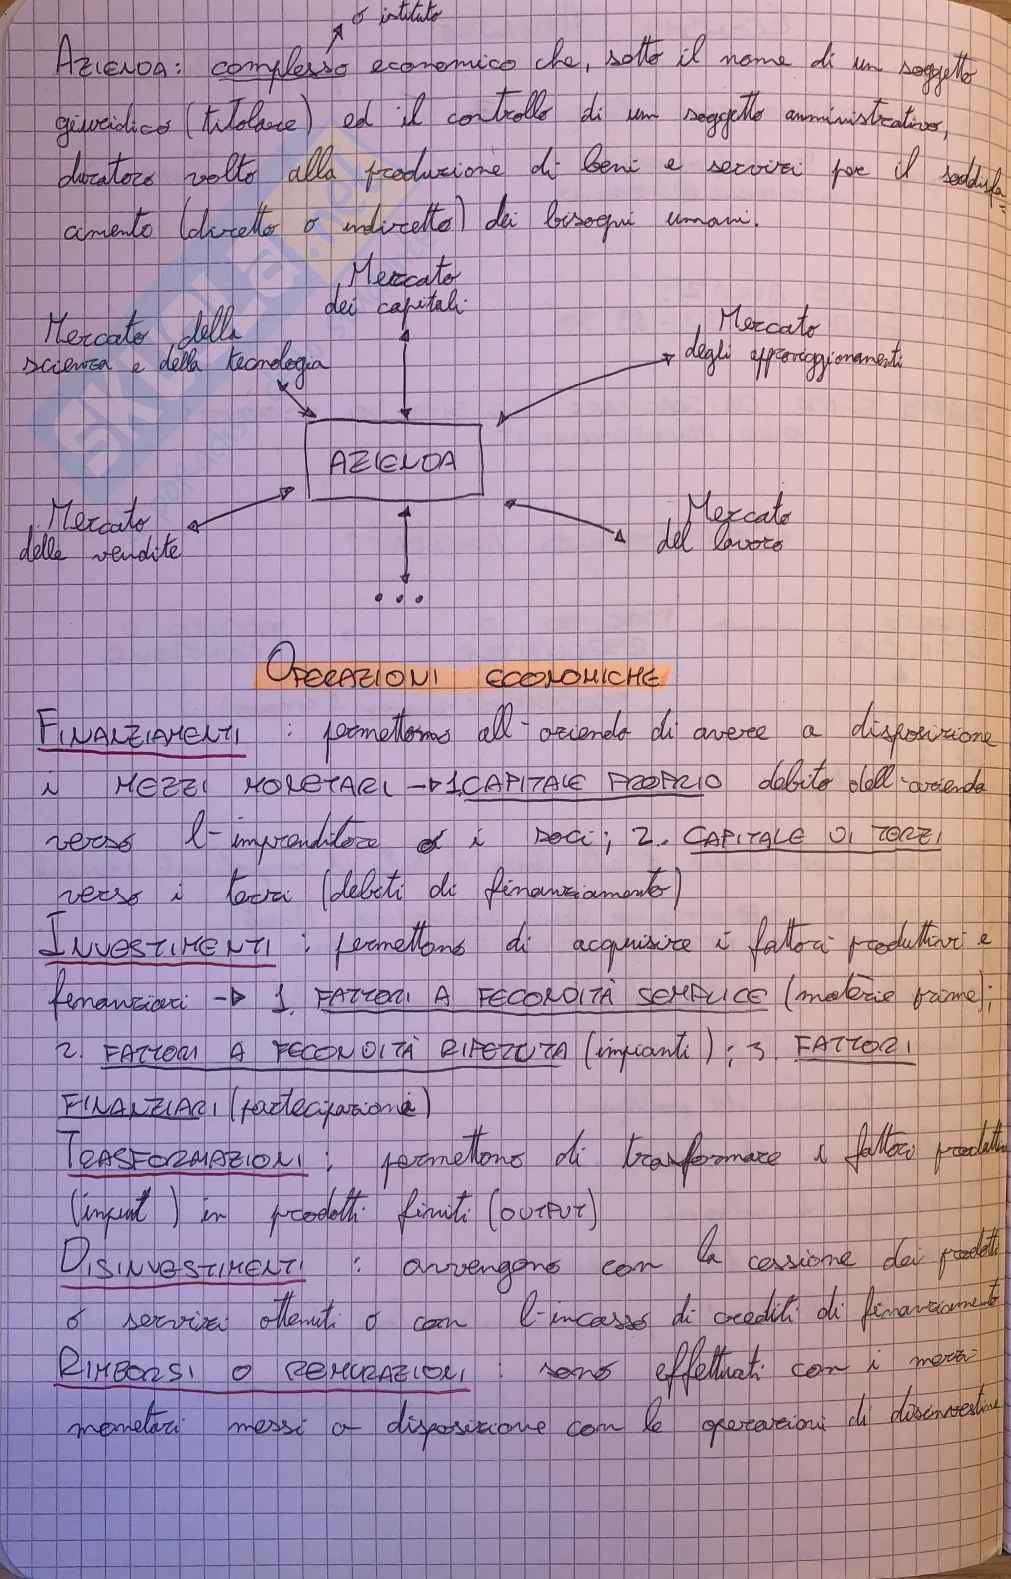 o istituto
AZIENDA: complesso economico che, sotto il nome di un soggetto
giuridico (titolare) ed il controllo di un soggetto amministrativo,
duraturo volto alla produzione di beni e servizi per il soddisfa=
amento (diretto o indiretto) dei bisogni umani.
Mercato
dei capitali
Mercato della
scienza e della tecnologia
Mercato
degli approvvigionamenti
AZIENDA
Mercato
delle vendite
Mercato
del lavoro
...
OPERAZIONI ECONOMICHE
FINANZIAMENTI : permettono all'azienda di avere a disposizione
i MEZZI MONETARI → 1. CAPITALE PROPRIO debito dell'azienda
verso l'imprenditore o i soci; 2. CAPITALE DI TERZI
verso i terzi (debiti di finanziamento)
INVESTIMENTI : permettono di acquisire i fattori produttivi e
finanziari → 1. FATTORI A FECONDITÀ SEMPLICE (materie prime);
2. FATTORI A FECONDITÀ RIPETUTA (impianti); 3. FATTORI
FINANZIARI (partecipazioni)
TRASFORMAZIONI : permettono di trasformare i fattori produttivi
(input) in prodotti finiti (OUTPUT)
DISINVESTIMENTI : avvengono con la cessione dei prodotti
o servizi ottenuti o con l'incasso di crediti di finanziamento
RIMBORSI O REMURAZIONI : sono effettuati con i mezzi
monetari messi a disposizione con le operazioni di disinvestime
SKUOLA.net